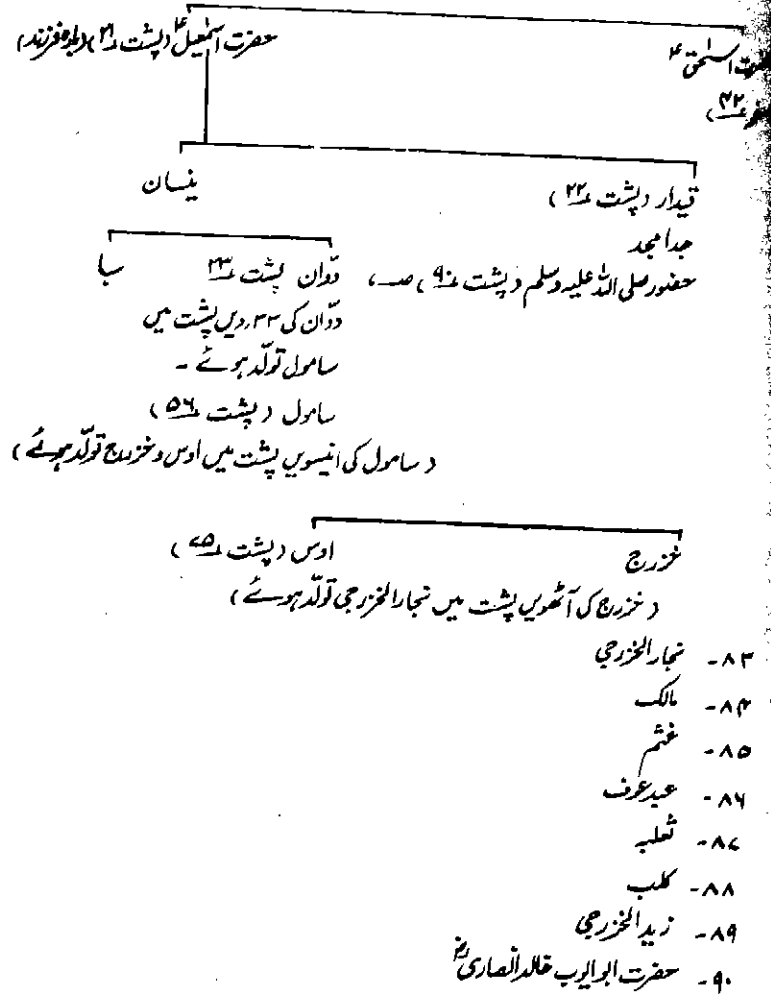 حضرت اسمٰعیل ؑ (پشت ۲۱) (بارہ فرزند)
اسحٰق ؑ
۴۲)
قیدار (پشت ۲۲)
ینسان
جدامجد
حضور صلی اللہ علیہ وسلم (پشت ۹۰)
دوّان پشت ۲۳
سبا
دوّان کی ۳۳ ویں پشت میں
سامول تولّد ہوئے -
سامول (پشت ۵۶)
(سامول کی انیسویں پشت میں اوس و خزرج تولّد ہوئے)
خزرج
اوس (پشت ۷۵)
(خزرج کی آٹھویں پشت میں نجار الخزرجی تولّد ہوئے)
۸۳- نجار الخزرجی
۸۴- مالک
۸۵- غثم
۸۶- عبد عوف
۸۷- ثعلبہ
۸۸- کلب
۸۹- زید الخزرجی
۹۰- حضرت ابو ایوب خالد انصاری ؓ